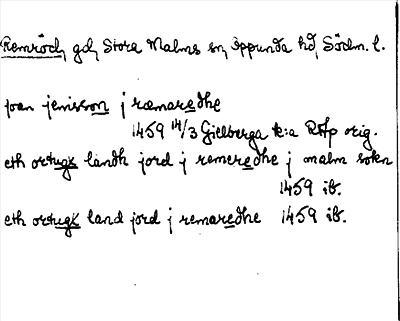 Remröd, gd, Stora Malms sn, Oppunda hd, Södm. l.
joan jenisson j ramaredhe
1459 14/3 Gillberga k:a RAp orig.
eth ortugx landh jord j remeredhe j malm soken
1459 ib.
eth ortugx land jord j remaredhe 1459 ib.